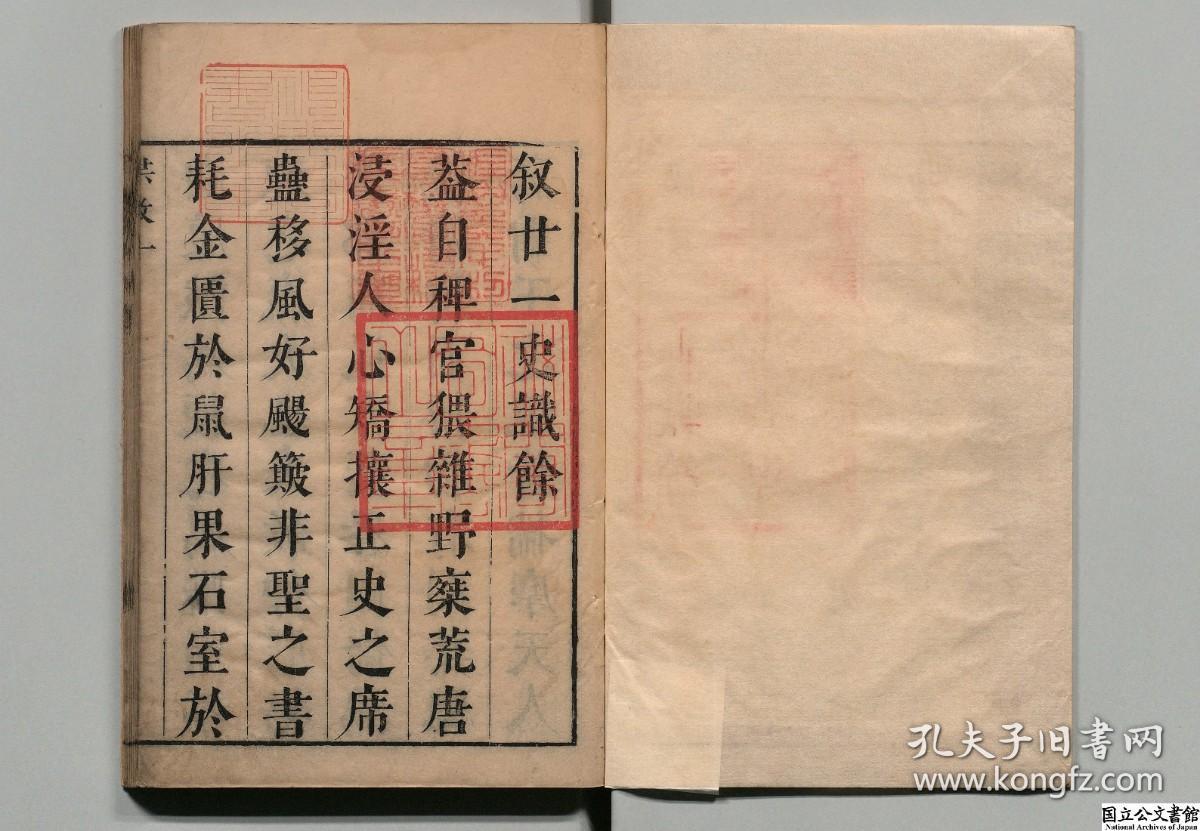 叙廿一史識餘
葢自稗官猥雜野椉荒唐
浸淫人心矯攘正史之席
蠱移風好颺簸非聖之書
耗金匱於鼠肝果石室於
孔夫子旧書网
www.kongfz.com
国立公文書館
National Archives of Japan